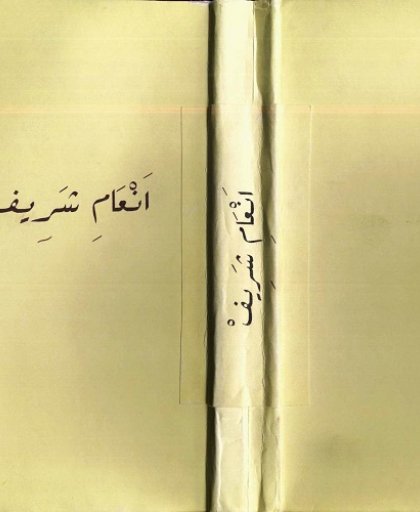 اَنْعَامِ شَرِيف
اَنْعَامِ شَرِيفْ